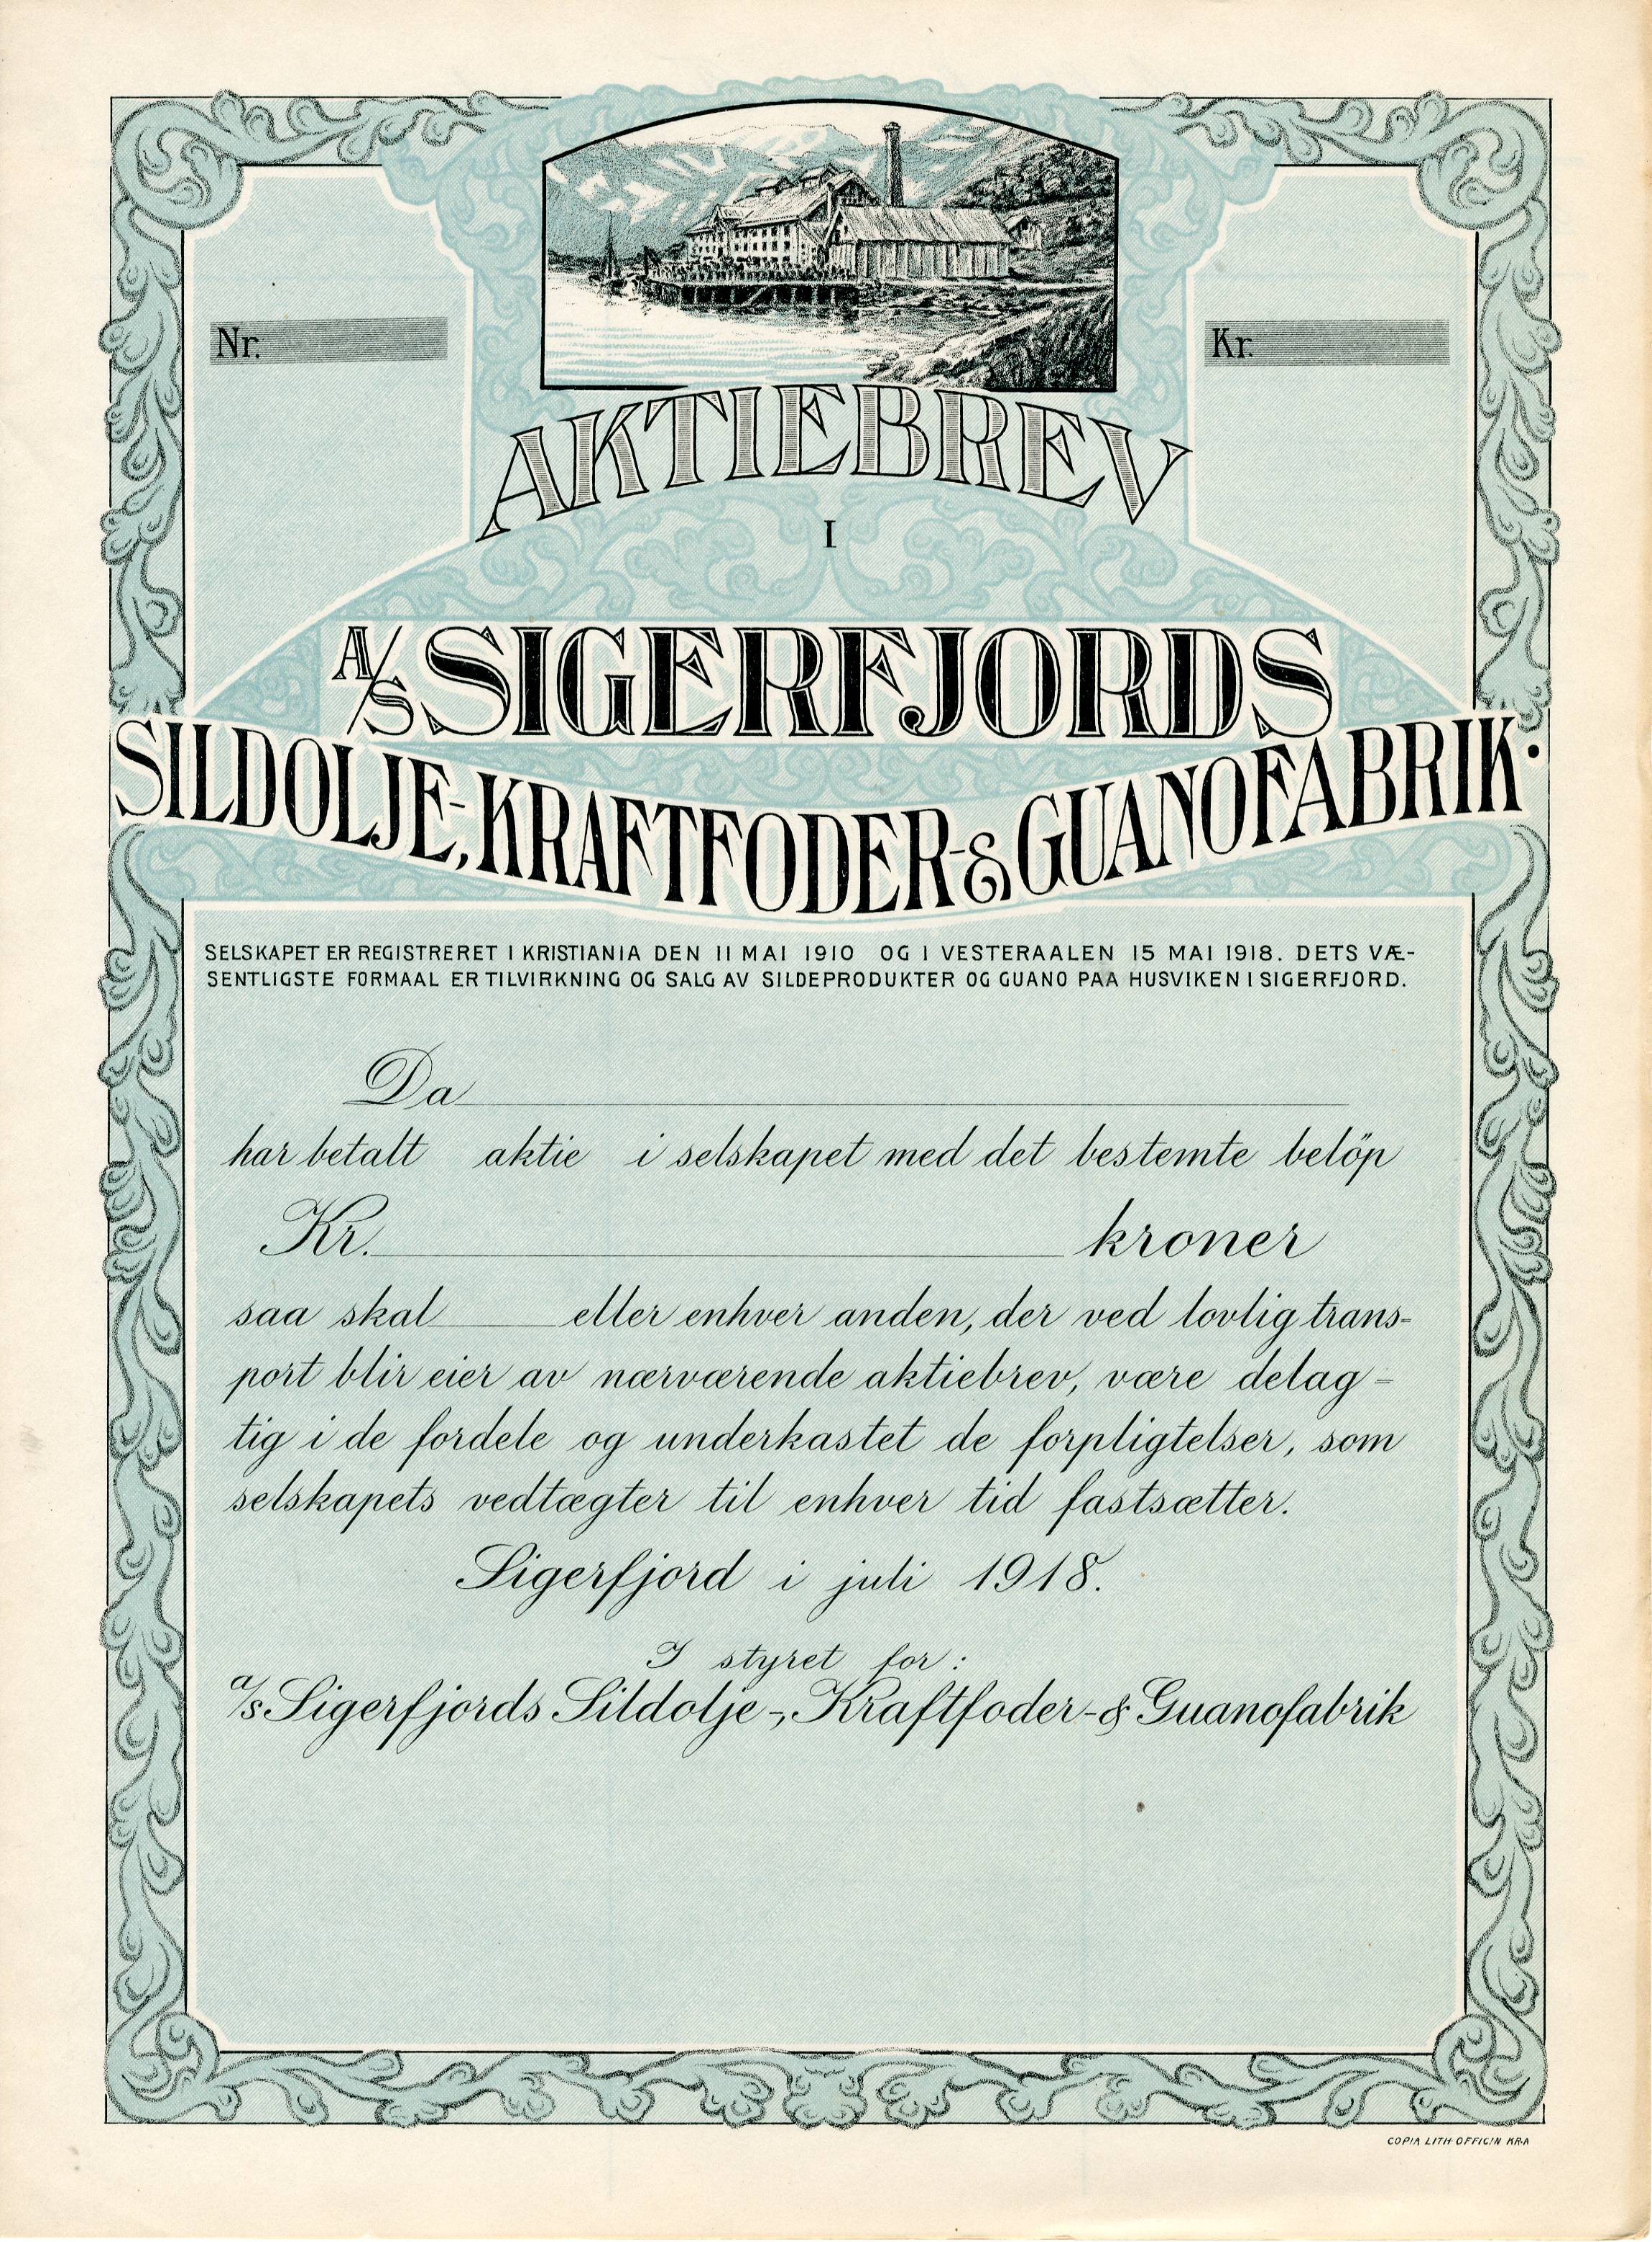 Nr.
Kr.
AKTIEBREV
I
A/S SIGERFJORDS
SILDOLJE-, KRAFTFODER- & GUANOFABRIK.
SELSKAPET ER REGISTRERET I KRISTIANIA DEN 11 MAI 1910 OG I VESTERAALEN 15 MAI 1918. DETS VÆ-
SENTLIGSTE FORMAAL ER TILVIRKNING OG SALG AV SILDEPRODUKTER OG GUANO PAA HUSVIKEN I SIGERFJORD.
Da
har betalt aktie i selskapet med det bestemte belöp
Kr. kroner
saa skal eller enhver anden, der ved lovlig trans-
port blir eier av nærværende aktiebrev, være delag-
tig i de fordele og underkastet de forpligtelser, som
selskapets vedtægter til enhver tid fastsætter.
Sigerfjord i juli 1918.
I styret for:
a/s Sigerfjords Sildolje-, Kraftfoder- & Guanofabrik
COPIA LITH. OFFICIN KR.A